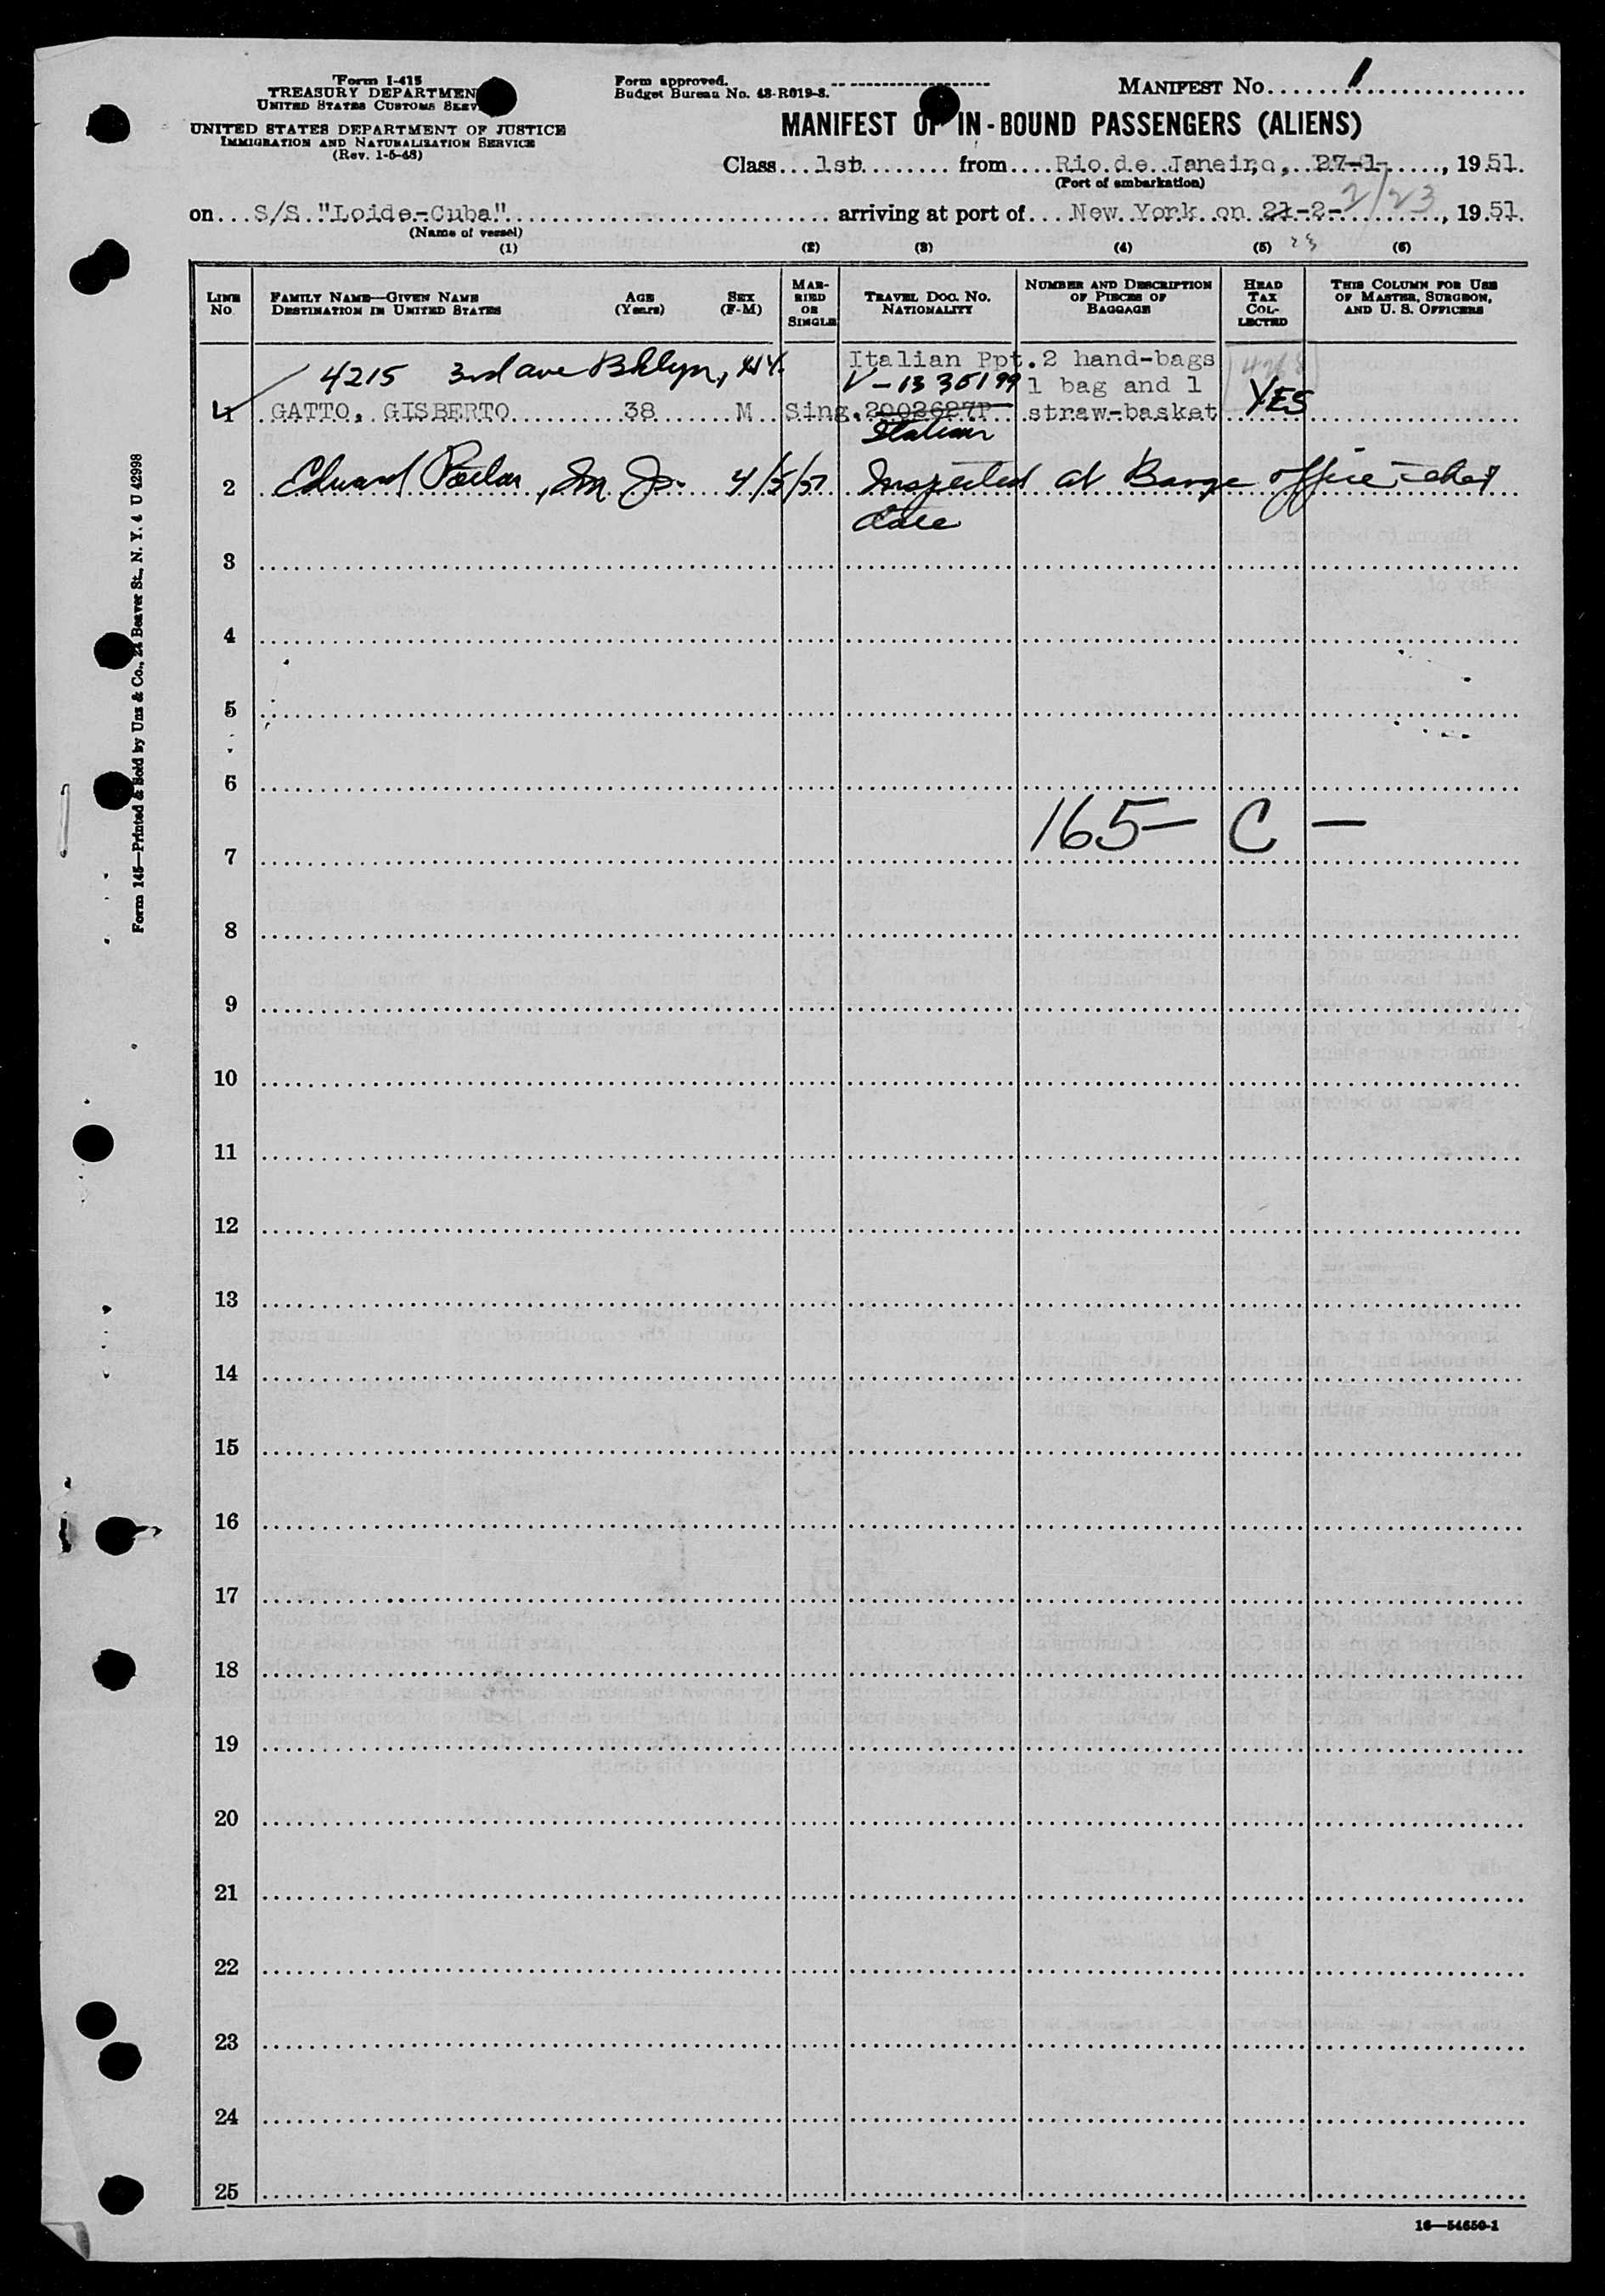 Form I-415
TREASURY DEPARTMEN
UNITED STATES CUSTOMS SERV
UNITED STATES DEPARTMENT OF JUSTICE
IMMIGRATION AND NATURALIZATION SERVICE
(Rev. 1-5-48)
Form approved.
Budget Bureau No. 43-R019-3.
MANIFEST No. 1
MANIFEST OF IN-BOUND PASSENGERS (ALIENS)
Class 1st from Rio de Janeiro, 27-1-, 1951.
(Port of embarkation)
on S/S "Loide-Cuba" arriving at port of New York on 21-2- 2/23, 1951.
(Name of vessel)
23
(1) (2) (3) (4) (5) (6)
LINE No. FAMILY NAME—GIVEN NAME DESTINATION IN UNITED STATES AGE (Years) SEX (F-M) MARRIED OR SINGLE TRAVEL DOC. NO. NATIONALITY NUMBER AND DESCRIPTION OF PIECES OF BAGGAGE HEAD TAX COLLECTED THIS COLUMN FOR USE OF MASTER, SURGEON, AND U. S. OFFICERS
4215 3rd ave Bklyn, N.Y. Italian Ppt. 2 hand-bags
V-1335199 1 bag and 1
1 GATTO, GISBERTO 38 M Sing. 2002627P straw-basket YES
Italian
2 Edward 4/5/51 Inspected at Barge office that
date
3
4
5
6
165- C -
7
8
9
10
11
12
13
14
15
16
17
18
19
20
21
22
23
24
25
16—54650-1
Form 145—Printed & Sold by Unz & Co., 24 Beaver St., N. Y. 4 U 42998